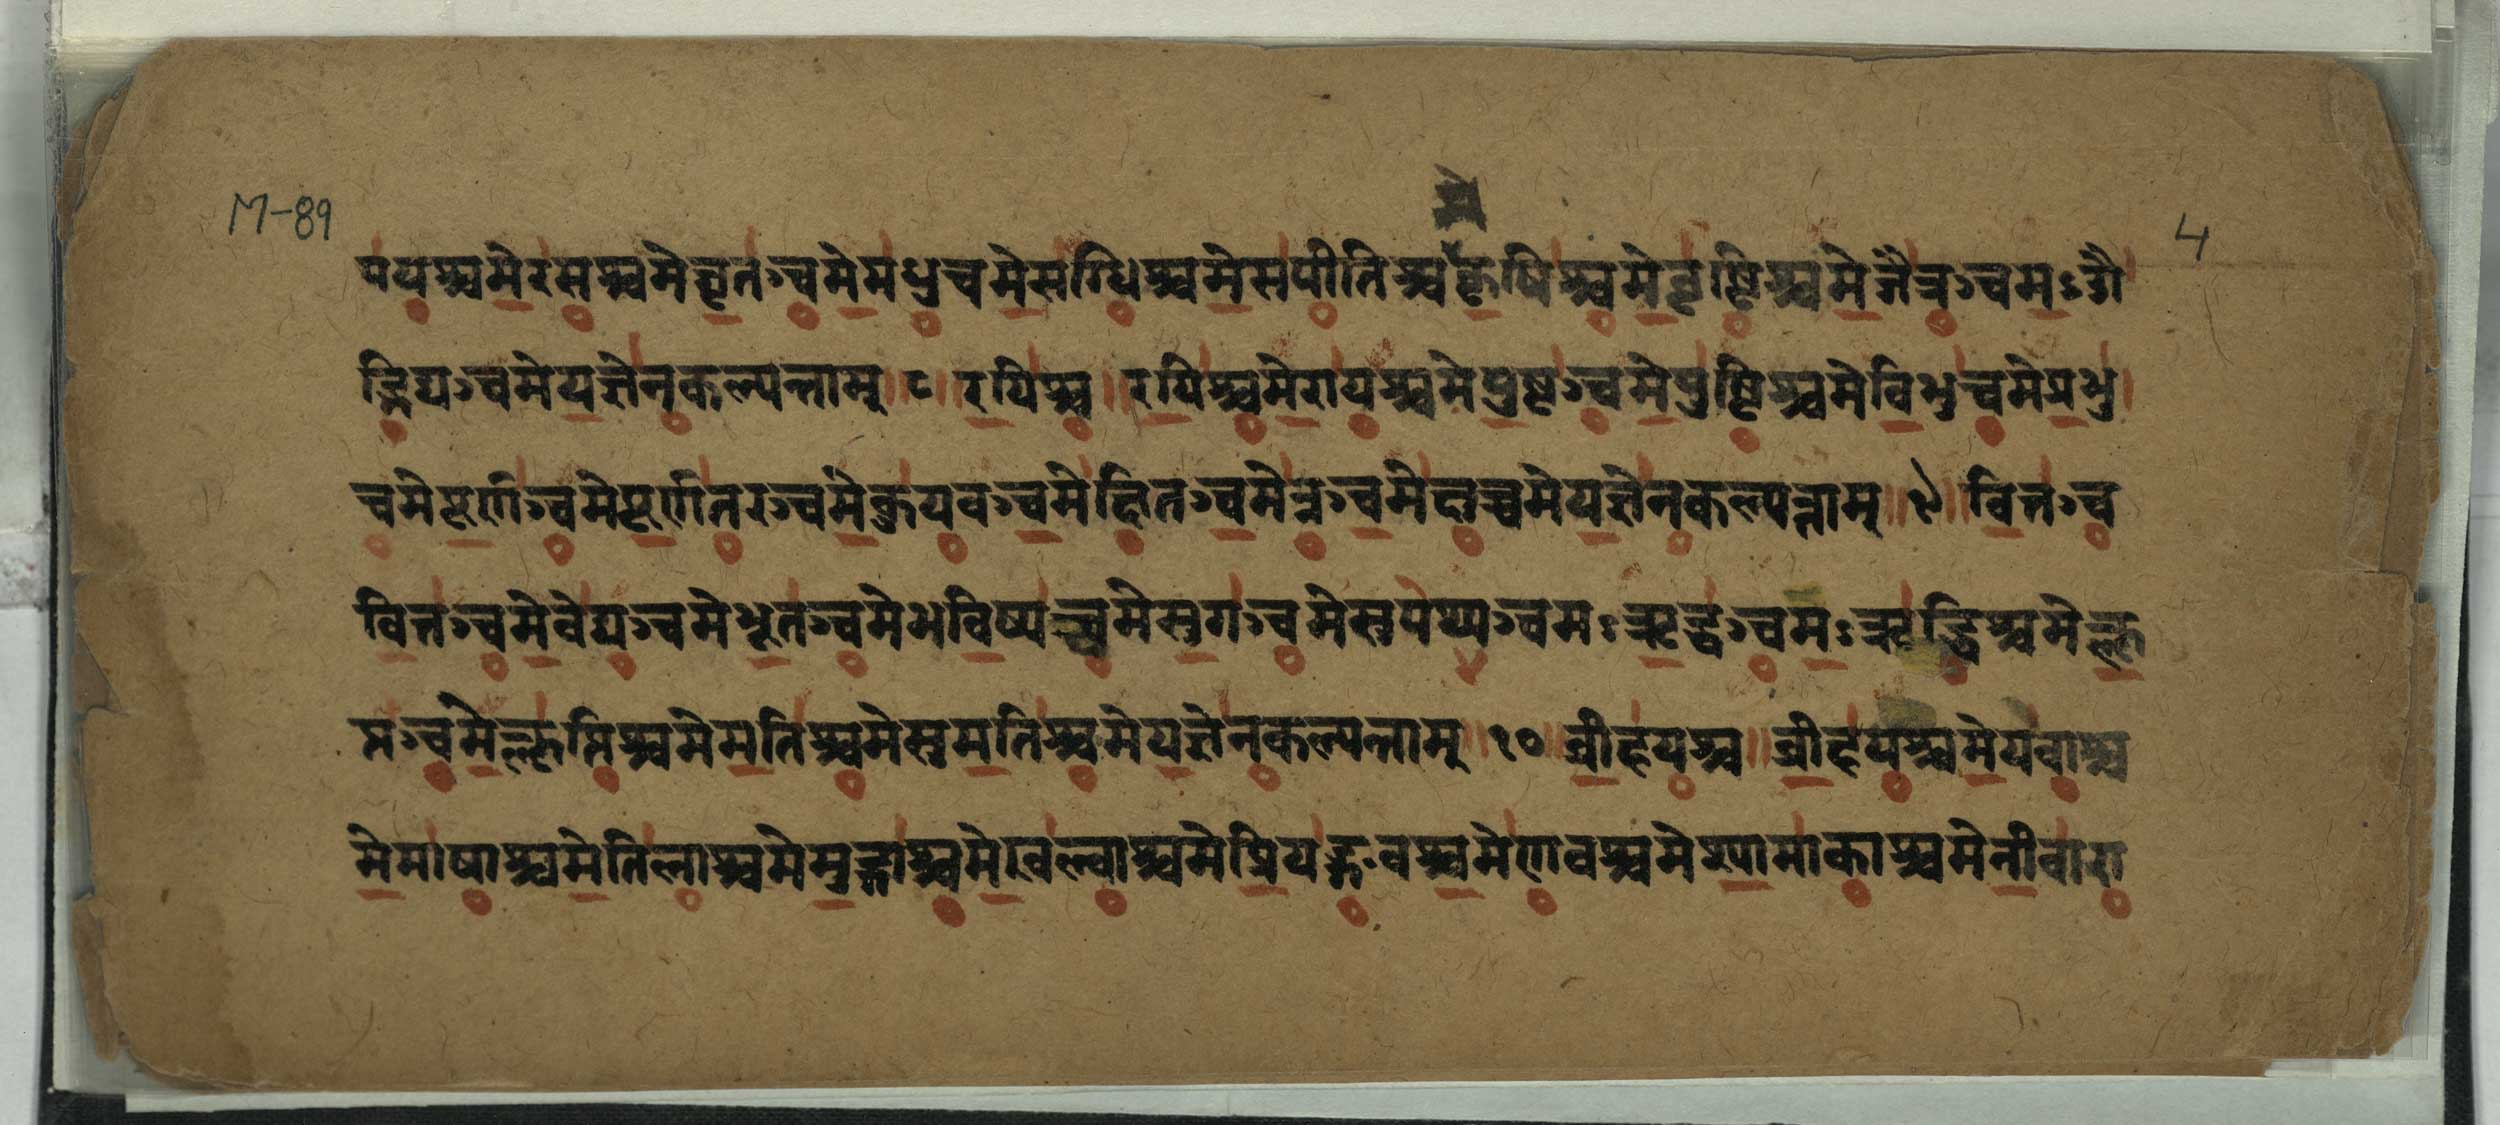 M-89
मे
4
पयश्चमेरसश्चमेघृतञ्चमेमधुचमेसग्धिश्चमेसपीतिश्चकृषिश्चमेवृष्टिश्चमेजैत्रञ्चमऽऔ
द्भिद्यञ्चमेयज्ञेनकल्पन्ताम् ॥ ८ ॥ रयिश्च ॥ रयिश्चमेरायश्चमेपुष्टञ्चमेपुष्टिश्चमेविभुचमेप्रभु
चमेपूर्णञ्चमेपूर्णतरञ्चमेकुयवञ्चमेक्षितञ्चमेन्नञ्चमेक्षुच्चमेयज्ञेनकल्पन्ताम् ॥ ९ ॥ वित्तञ्च
वित्तञ्चमेवेद्यञ्चमेभूतञ्चमेभविष्यच्चमेसुगञ्चमेसुपथ्यञ्चमऽऋद्धञ्चमऽऋद्धिश्चमेक्लृ
प्तञ्चमेक्लृप्तिश्चमेमतिश्चमेसुमतिश्चमेयज्ञेनकल्पन्ताम् ॥ १० ॥ व्रीहयश्च ॥ व्रीहयश्चमेयवाश्च
मेमाषाश्चमेतिलाश्चमेमुद्गाश्चमेखल्वाश्चमेप्रियङ्गवश्चमेणवश्चमेश्यामाकाश्चमेनीवारा